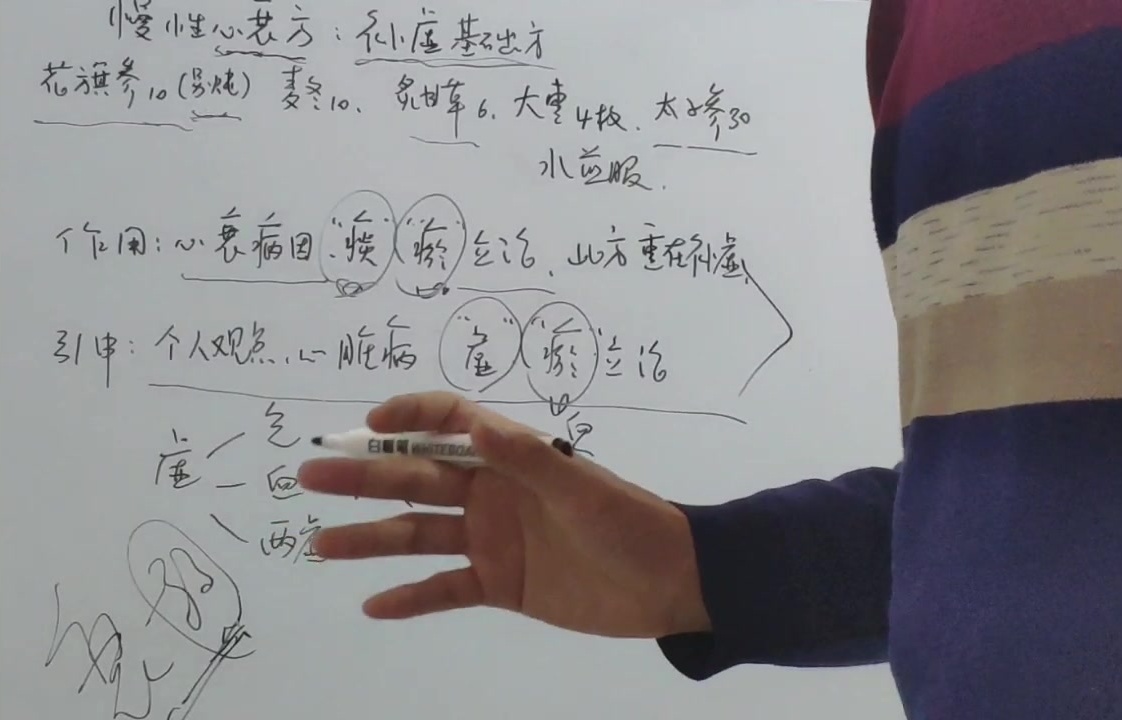 慢性心衰方：补虚基础方
花旗参10(另炖) 麦冬10、炙甘草6、大枣4枚、太子参30
水煎服.
作用：心衰病因"痰""瘀"立论、此方重在补虚
引申：个人观点、心脏病"虚""瘀"立论
虚 气 血
血
两虚
白板笔 WHITEBOA